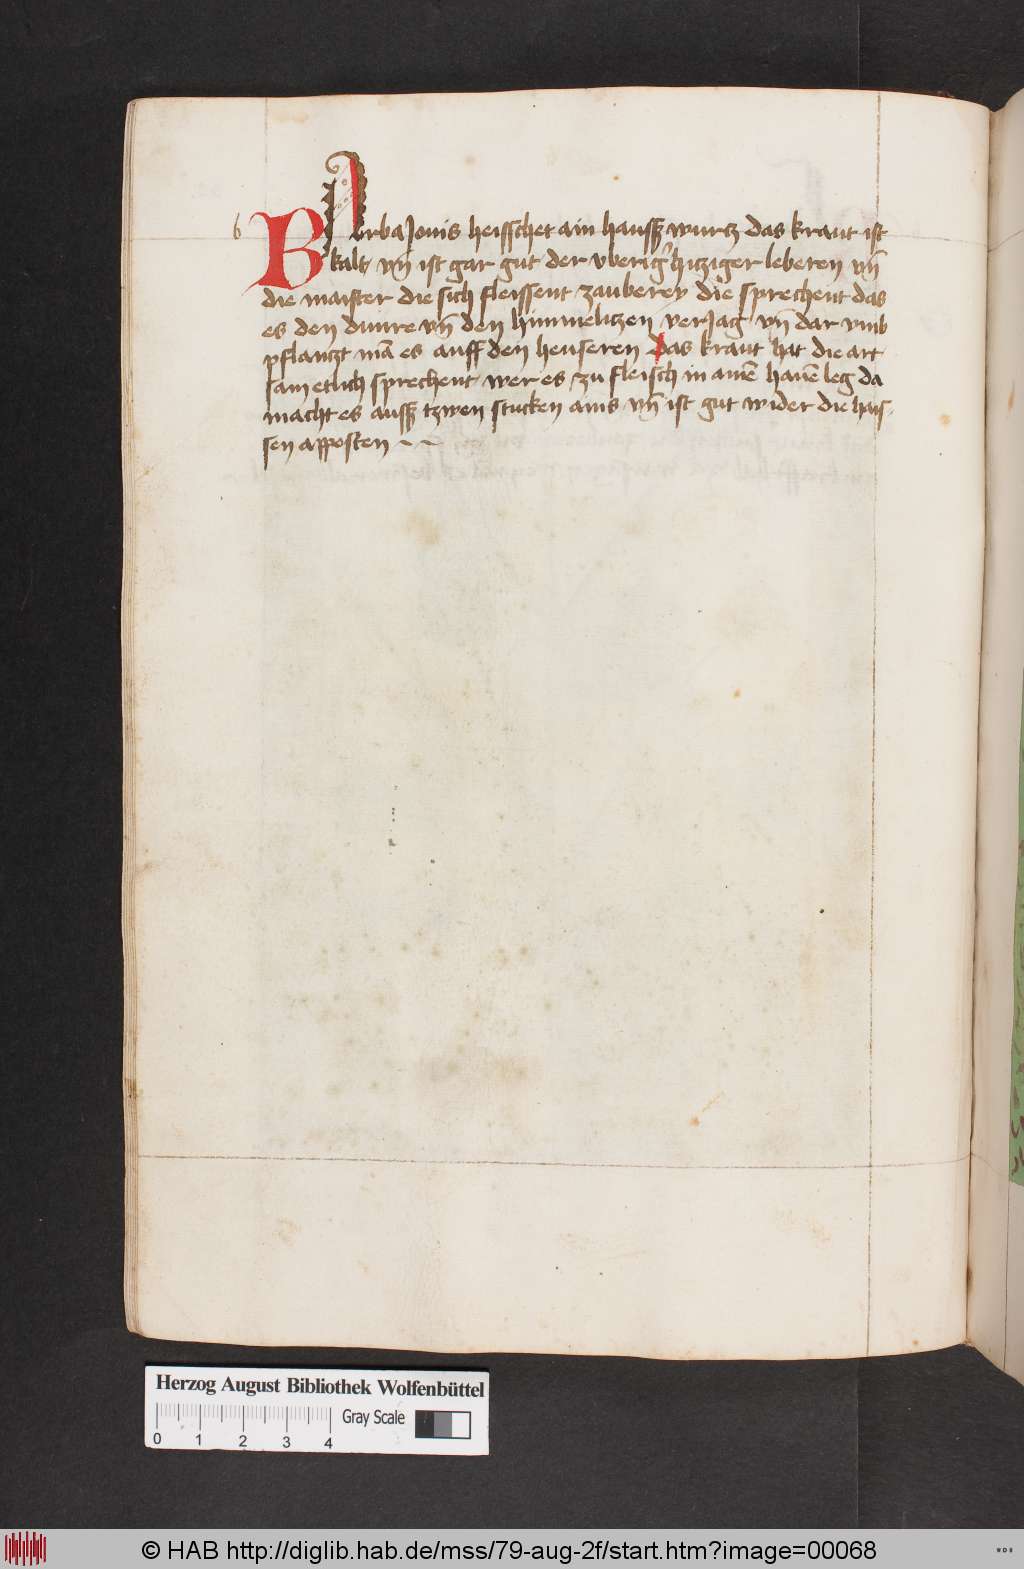 b BArba Jouis heisschet ain haussz wurtz das kraut ist
kalt vn̄ ist gar gut der vberigē hitziger leberen vn̄
die maister die sich fleissent zauberey die sprechent das
es den dunre vn̄ den himmelitzen verJag vn̄ dar vmb
pflantzt mā es auff den heuseren Das kraut hat die art
sam etlich sprechent wer es zu fleisch in ainē hauē leg da
macht es aussz tzwen stucken ains vn̄ ist gut wider die hais-
sen apposten
Herzog August Bibliothek Wolfenbüttel
Gray Scale
0 1 2 3 4
© HAB http://diglib.hab.de/mss/79-aug-2f/start.htm?image=00068